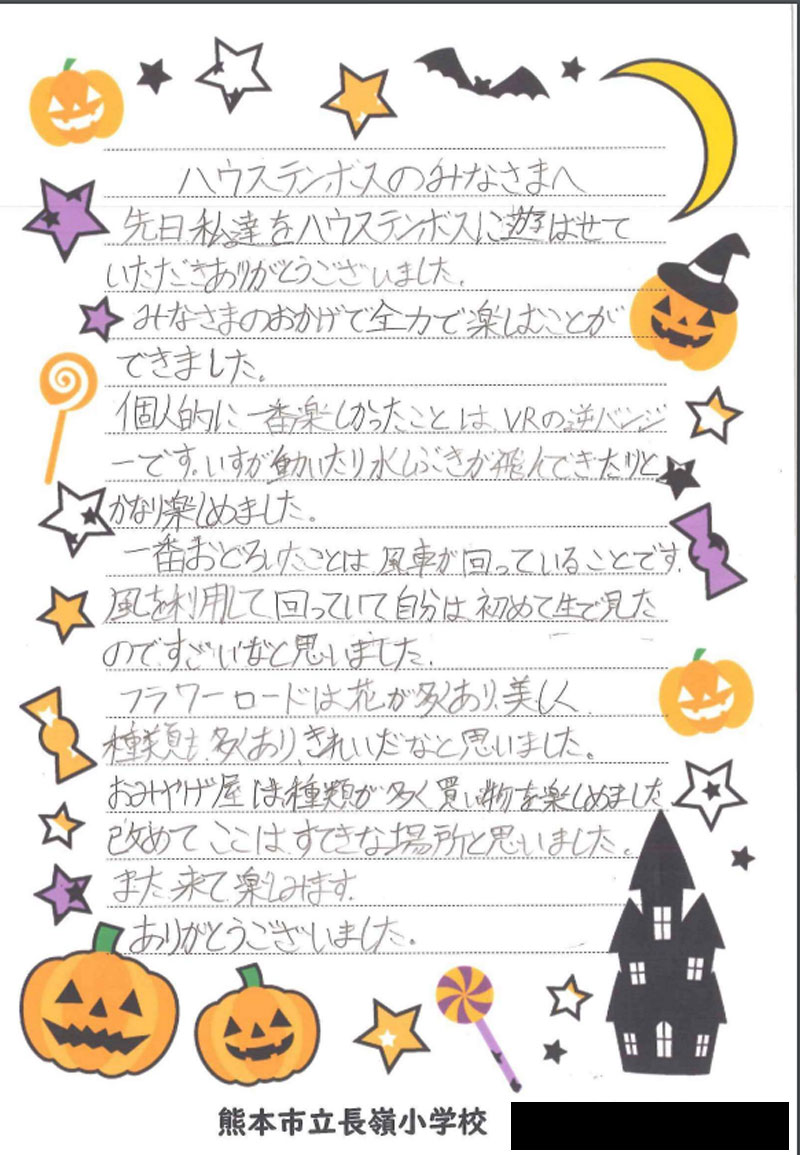 ハウステンボスのみなさまへ
先日私達をハウステンボスに遊ばせて
いただきありがとうございました。
みなさまのおかげで全力で楽しむことが
できました。
個人的に一番楽しかったことは、VRの逆バンジ
ーです。いすが動いたり水しぶきが飛んできたりと
かなり楽しめました。
一番おどろいたことは風車が回っていることです。
風を利用して回っていて自分は初めて生で見た
のですごいなと思いました。
フラワーロードは花が多くあり、美しく
種類も多くあり、きれいだなと思いました。
おみやげ屋は種類が多く買い物を楽しめました
改めてここは、すてきな場所と思いました。
また来て楽しみます。
ありがとうございました。
熊本市立長嶺小学校